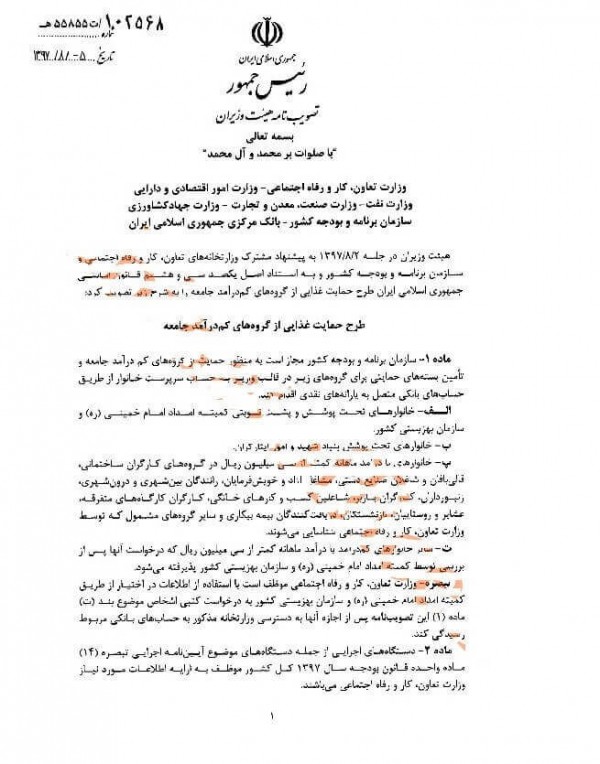 ۱۰۲۵۶۸/ت۵۵۸۵۵هـ
شماره
تاریخ ۱۳۹۷/۸/۰۵
جمهوری اسلامی ایران
رئیس جمهور
تصویب نامه هیئت وزیران
بسمه تعالی
"با صلوات بر محمد و آل محمد"
وزارت تعاون، کار و رفاه اجتماعی- وزارت امور اقتصادی و دارایی
وزارت نفت- وزارت صنعت، معدن و تجارت - وزارت جهادکشاورزی
سازمان برنامه و بودجه کشور- بانک مرکزی جمهوری اسلامی ایران
هیئت وزیران در جلسه ۱۳۹۷/۸/۲ به پیشنهاد مشترک وزارتخانه‌های تعاون، کار و رفاه اجتماعی و
سازمان برنامه و بودجه کشور و به استناد اصل یکصد و سی و هشتم قانون اساسی
جمهوری اسلامی ایران طرح حمایت غذایی از گروه‌های کم‌درآمد جامعه را به شرح زیر تصویب کرد:
طرح حمایت غذایی از گروه‌های کم‌درآمد جامعه
ماده ۱- سازمان برنامه و بودجه کشور مجاز است به منظور حمایت از گروه‌های کم درآمد جامعه و
تأمین بسته‌های حمایتی برای گروه‌های زیر در قالب واریز به حساب سرپرست خانوار از طریق
حساب‌های بانکی متصل به یارانه‌های نقدی اقدام کند.
الف- خانوارهای تحت پوشش و پشت نوبتی کمیته امداد امام خمینی (ره) و
سازمان بهزیستی کشور.
ب- خانوارهای تحت پوشش بنیاد شهید و امور ایثارگران.
پ- خانوارهای با درآمد ماهانه کمتر از سی میلیون ریال در گروه‌های کارگران ساختمانی،
قالی‌بافان و شاغلان صنایع دستی، مشاغل آزاد و خویش‌فرمایان، رانندگان بین‌شهری و درون‌شهری،
زنبورداران، کارگران باربر، شاغلین کسب و کارهای خانگی، کارگران کارگاه‌های متفرقه،
عشایر و روستاییان، بازنشستگان، دریافت‌کنندگان بیمه بیکاری و سایر گروه‌های مشمول که توسط
وزارت تعاون، کار و رفاه اجتماعی شناسایی می‌شوند.
ت- سایر خانوارهای کم‌درآمد با درآمد ماهانه کمتر از سی میلیون ریال که درخواست آنها پس از
بررسی توسط کمیته امداد امام خمینی (ره) و سازمان بهزیستی کشور پذیرفته می‌شود.
تبصره- وزارت تعاون، کار و رفاه اجتماعی موظف است با استفاده از اطلاعات در اختیار از طریق
کمیته امداد امام خمینی (ره) و سازمان بهزیستی کشور به درخواست کتبی اشخاص موضوع بند (ت)
ماده (۱) این تصویب‌نامه پس از اجازه آنها به دسترسی وزارتخانه مذکور به حساب‌های بانکی مربوط
رسیدگی کند.
ماده ۲- دستگاه‌های اجرایی از جمله دستگاه‌های موضوع آیین‌نامه اجرایی تبصره (۱۴)
ماده واحده قانون بودجه سال ۱۳۹۷ کل کشور موظف به ارایه اطلاعات مورد نیاز
وزارت تعاون، کار و رفاه اجتماعی می‌باشند.
۱